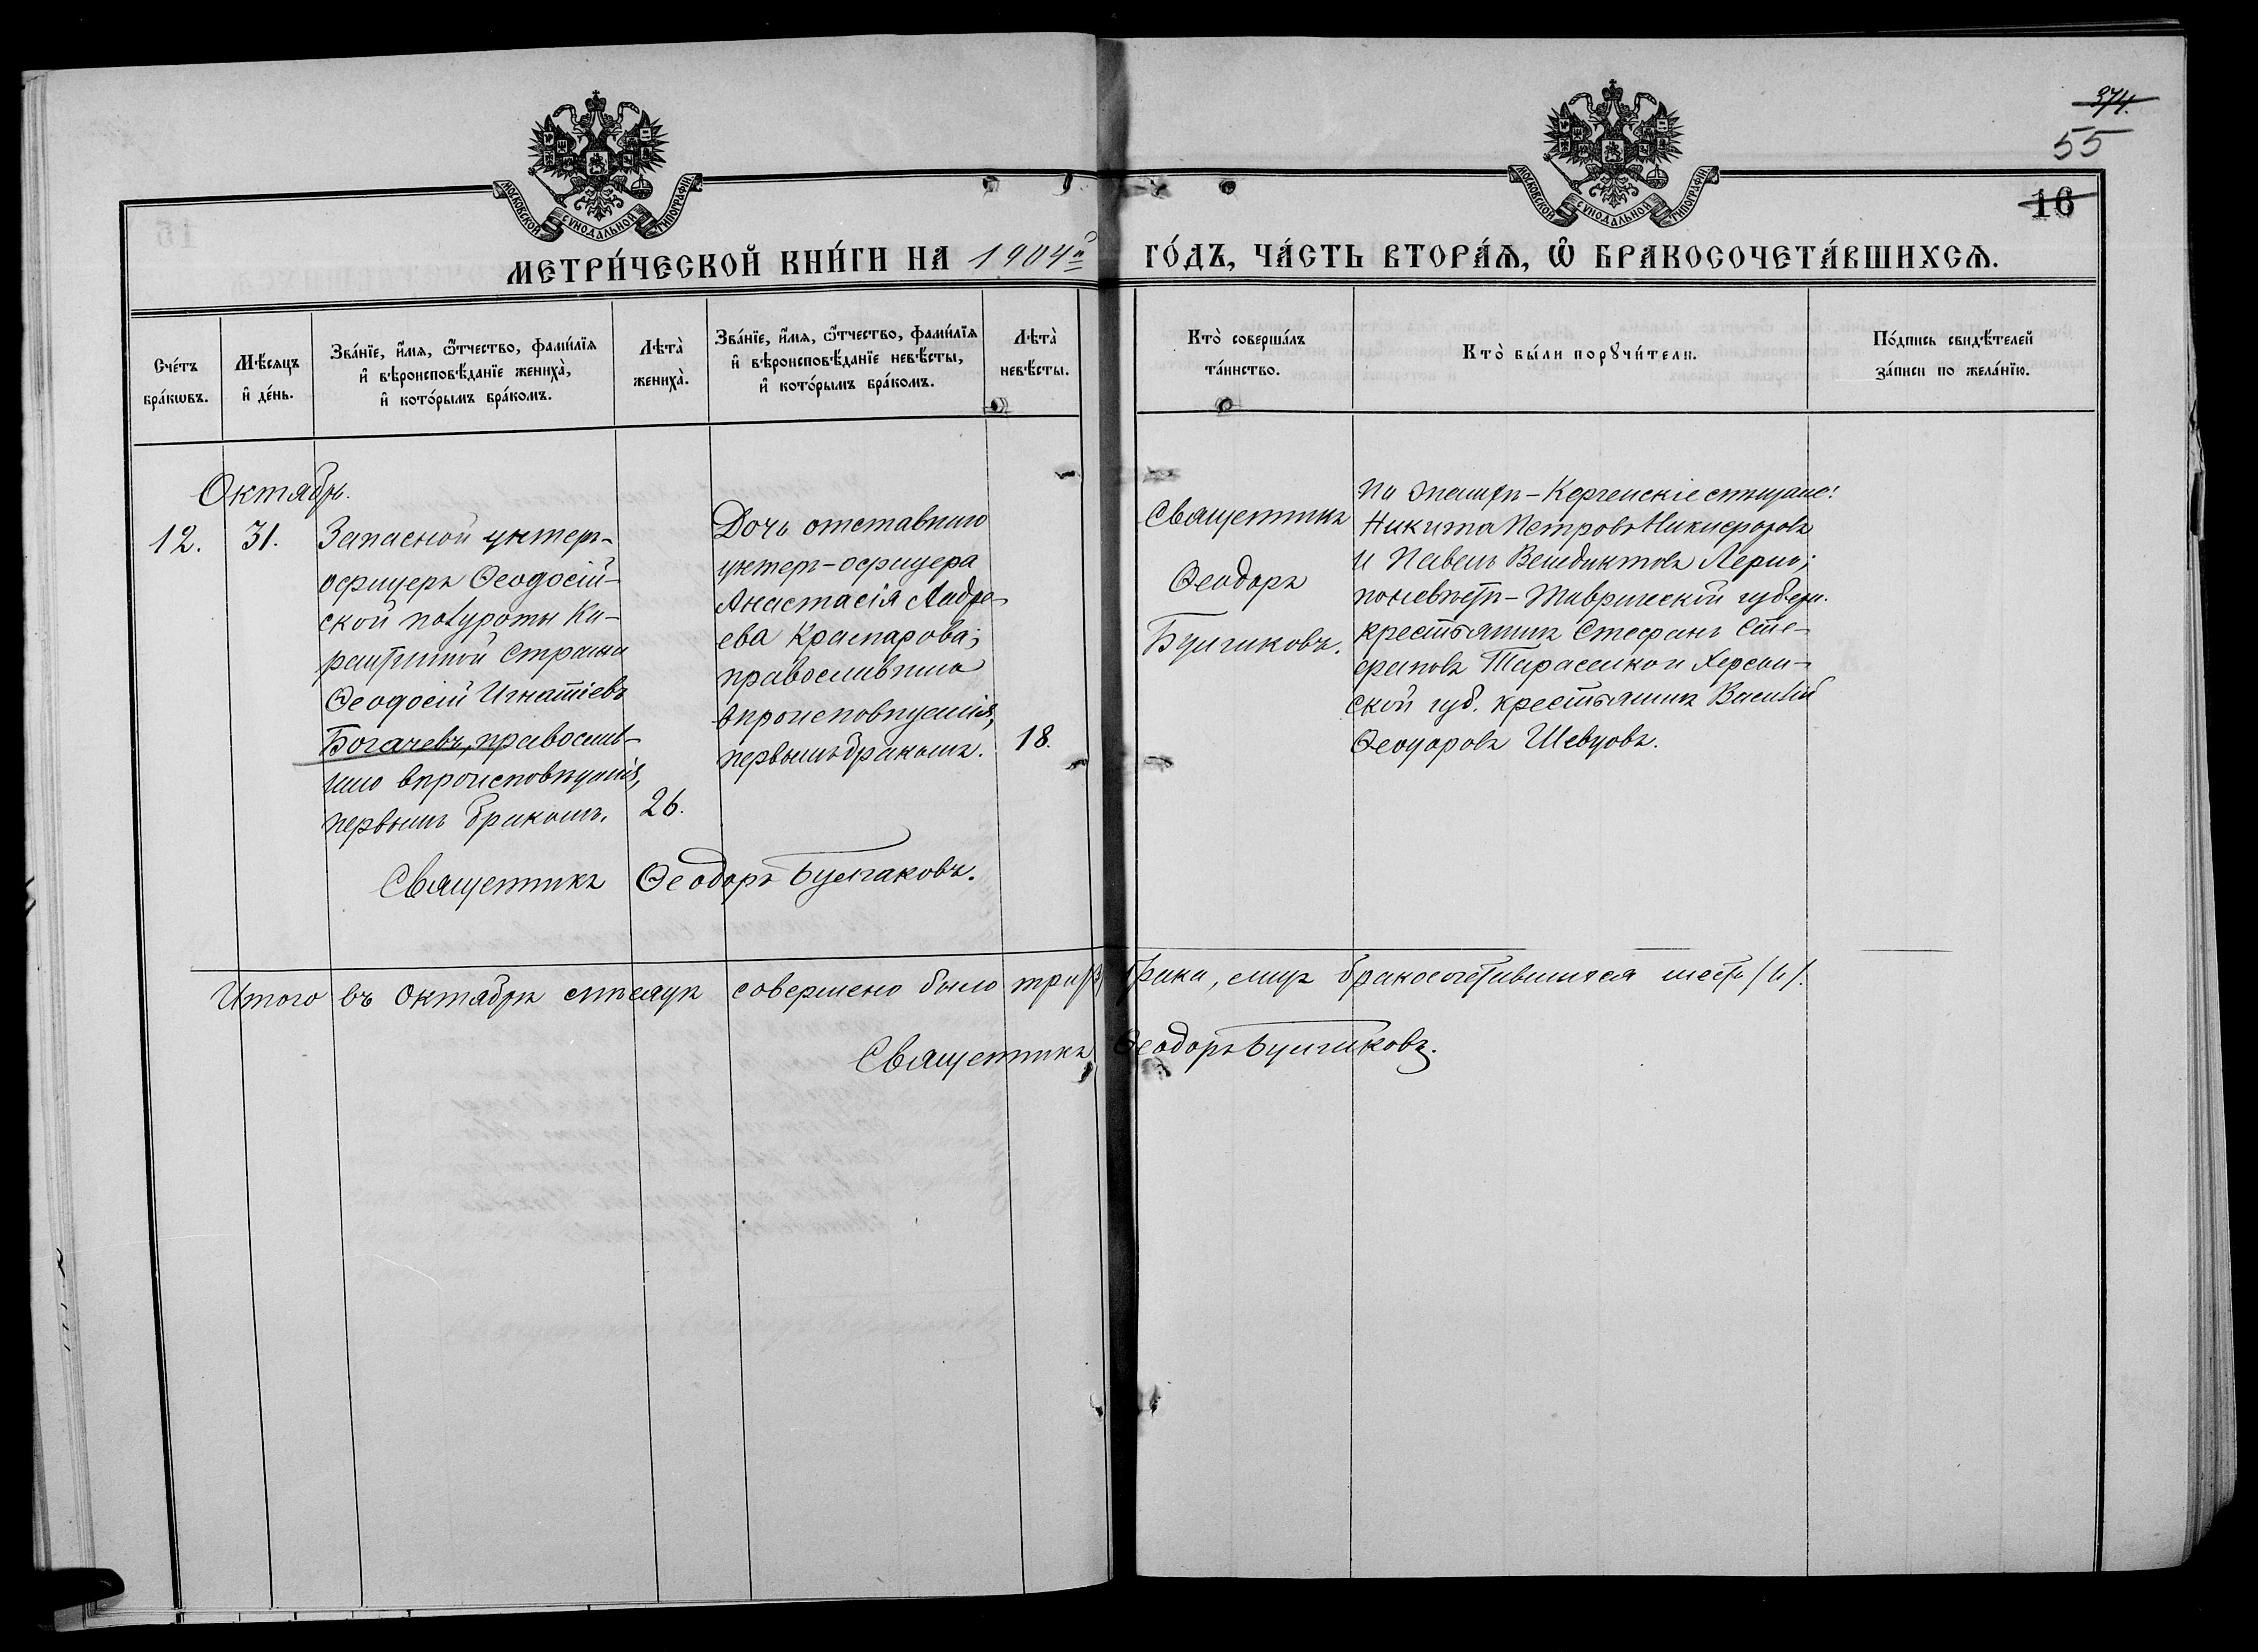 374.
55
16
МОСКОВСКОЙ СѴНОДАЛЬНОЙ ТИПОГРАФІИ
МОСКОВСКОЙ СѴНОДАЛЬНОЙ ТИПОГРАФІИ
МЕТРИ́ЧЕСКОЙ КНИ́ГИ НА 1904й ГО́ДЪ, ЧА́СТЬ ВТОРА́Ѧ, Ѡ҆ БРАКОСОЧЕТА́ВШИХСѦ.
Сче́тъ
бра́кѡвъ.
Мѣ́сяцъ
и҆ де́нь.
Зва́нїе, и҆́мя, ѻ҆́тчество, фами́лїя
и҆ вѣроисповѣ́данїе жениха̀,
и҆ кото́рымъ бра́комъ.
Лѣта̀
жениха̀.
Зва́нїе, и҆́мя, ѻ҆́тчество, фами́лїя
и҆ вѣроисповѣ́данїе невѣ́сты,
и҆ кото́рымъ бра́комъ.
Лѣта̀
невѣ́сты.
Кто̀ соверша́лъ
та́инство.
Кто̀ бы́ли порꙋчи́тели.
По́дпись свидѣ́телей
за́писи по жела́нїю.
Октябрь.
12.
31.
Запасной унтеръ-
офицеръ Ѳеодосій-
ской полуроты Ка-
рантинной Стражи
Ѳеодосій Игнатіевъ
Богачевъ, православ-
наго вѣроисповѣданія,
первымъ бракомъ.
26.
Дочь отставнаго
унтеръ-офицера
Анастасія Андре-
ева
православнаго
вѣроисповѣданія,
первымъ бракомъ.
18.
Священникъ
Ѳеодоръ
Булгаковъ.
По женихѣ - Керченскіе мѣщане:
Никита Петровъ Никифоровъ
и Павелъ Венедиктовъ
по невѣстѣ - Таврической губерн.
крестьянинъ Стефанъ Сте-
фановъ Тарасенко и Херсон-
ской губ. крестьянинъ Василій
Ѳеодоровъ Шевцовъ.
Священникъ Ѳеодоръ Булгаковъ.
Итого въ Октябрѣ мѣсяцѣ совершено было три /3/ брака, лицъ бракосочетавшихся шесть /6/.
Священникъ Ѳеодоръ Булгаковъ.